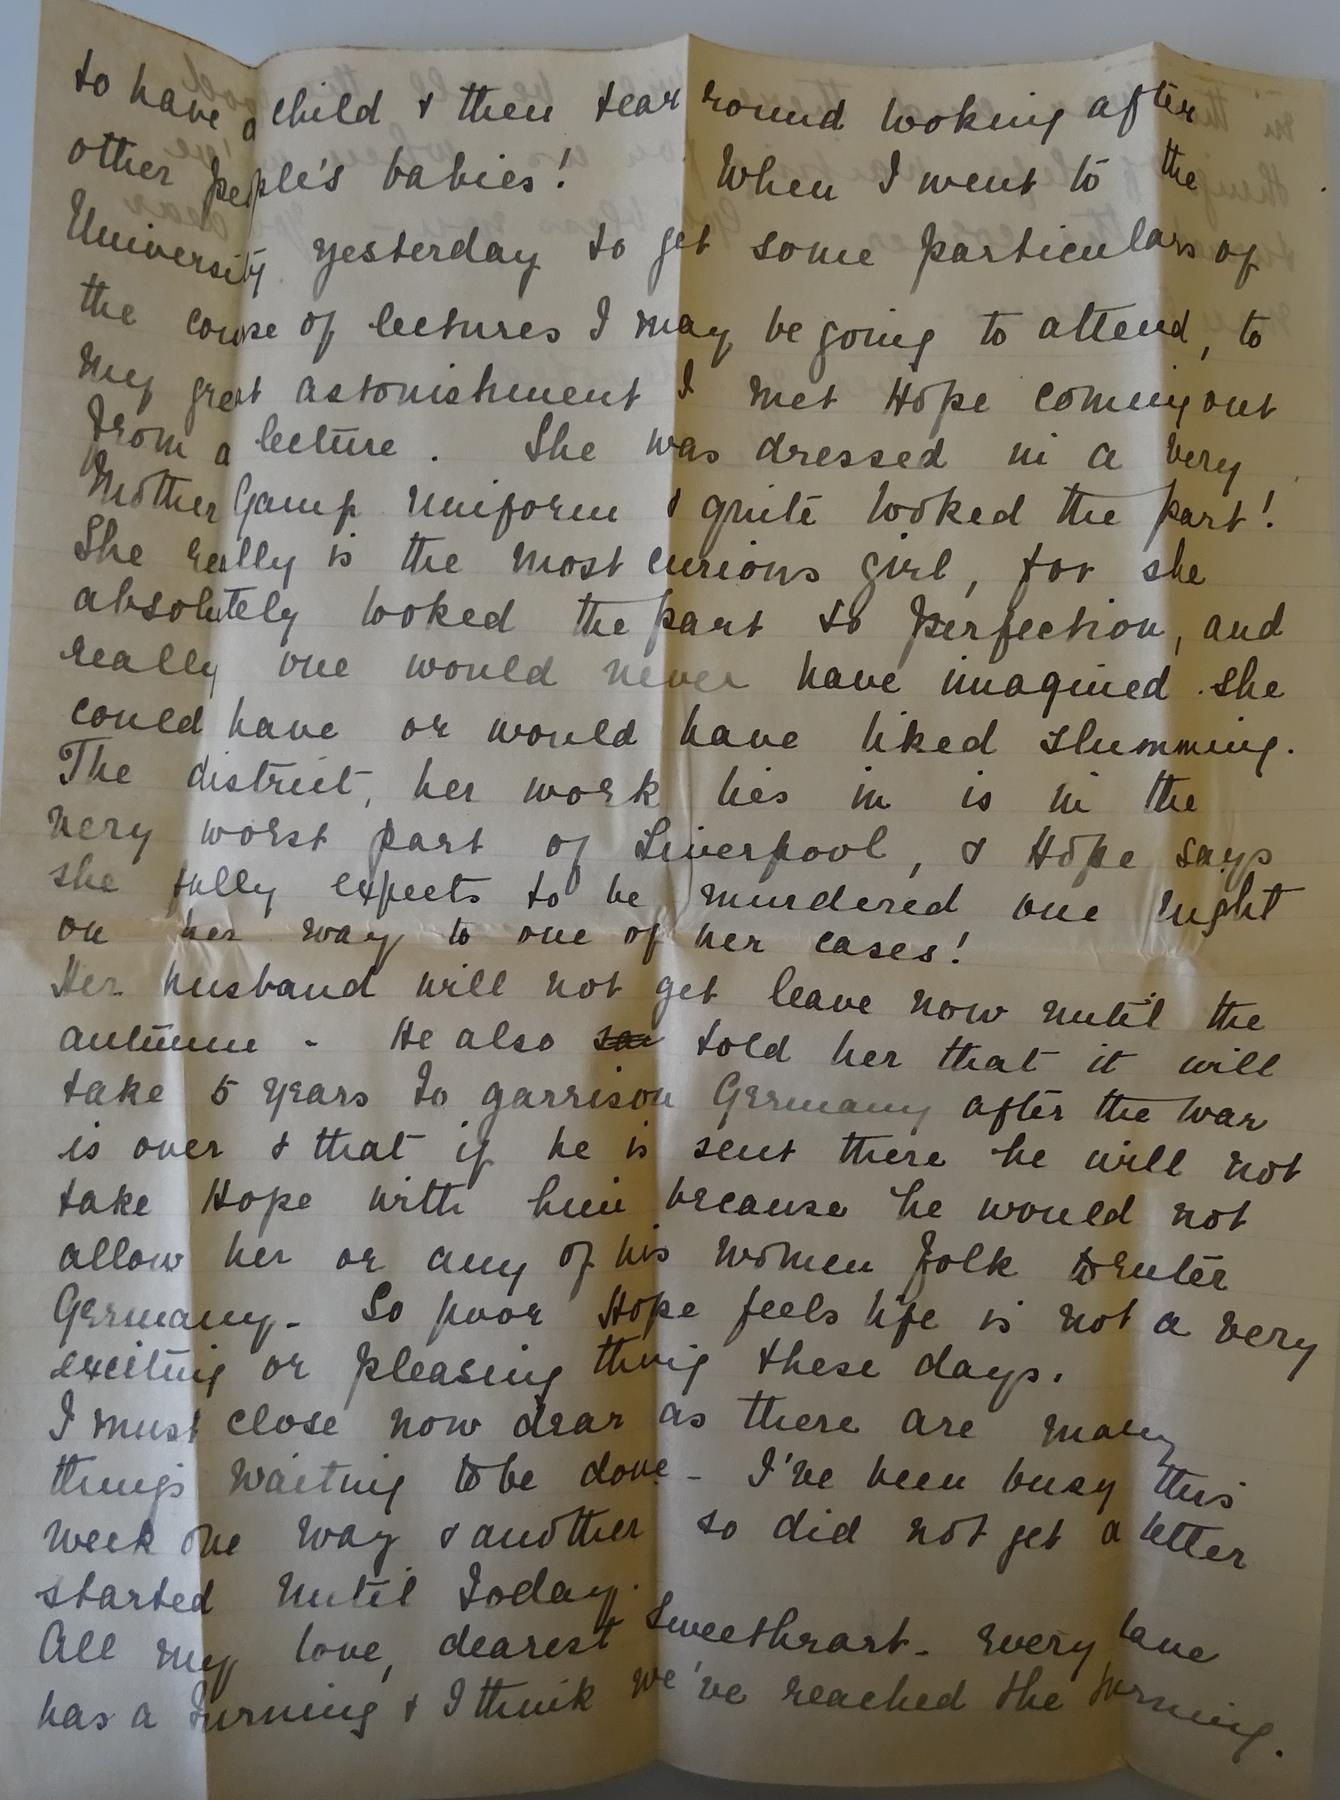 to have a child & then tear round looking after
other people's babies! When I went to the
University yesterday to get some particulars of
the course of lectures I may be going to attend, to
my great astonishment I met Hope coming out
from a lecture. She was dressed in a very
Mother Gamp uniform & quite looked the part!
She really is the most curious girl, for she
absolutely looked the part to perfection, and
really one would never have imagined she
could have or would have liked slumming.
The district, her work lies in is in the
very worst part of Liverpool, & Hope says
she fully expects to be murdered one night
on her way to one of her cases!
Her husband will not get leave now until the
autumn - He also told her that it will
take 5 years to garrison Germany after the war
is over & that if he is sent there he will not
take Hope with him because he would not
allow her or any of his women folk to enter
Germany - So poor Hope feels life is not a very
exciting or pleasing thing these days.
I must close now dear as there are many
things waiting to be done - I've been busy this
week one way & another so did not get a letter
started until today.
All my love, dearest Sweetheart - every lane
has a turning & I think we've reached the turning.